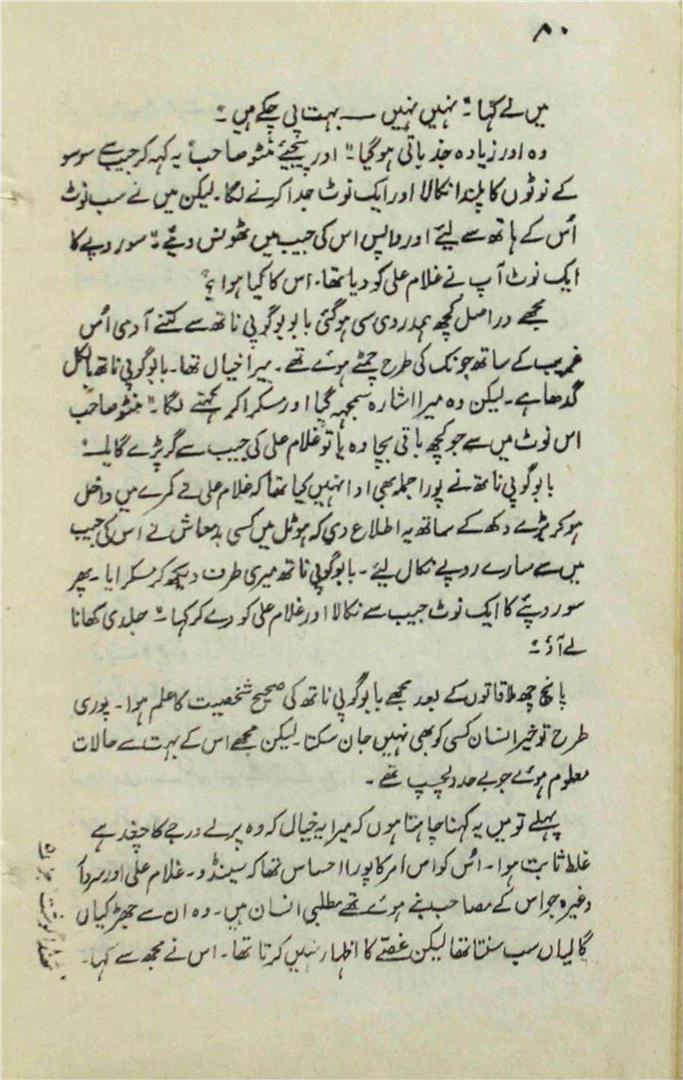 ۸۰
میں نے کہا "نہیں نہیں — بہت پی چکے ہیں"۔
وہ اور زیادہ جذباتی ہوگیا" اور پیجیئے منٹو صاحب" یہ کہہ کر جیب سے سو سو
کے نوٹوں کا پلندا نکالا اور ایک نوٹ جدا کرنے لگا۔ لیکن میں نے سب نوٹ
اُس کے ہاتھ سے لیئے اور واپس اس کی جیب میں ٹھونس دیئے" سو روپے کا
ایک نوٹ آپ نے غلام علی کو دیا تھا۔ اس کا کیا ہوا ؟"
مجھے دراصل کچھ ہمدردی سی ہوگئی بابو بوگوپی ناتھ سے کتنے آدمی اُس
غریب کے ساتھ جونک کی طرح چمٹے ہوئے تھے۔ میرا خیال تھا۔ بابو گوپی ناتھ بالکل
گدھا ہے۔ لیکن وہ میرا اشارہ سمجھ گیا اور مسکرا کر کہنے لگا۔" منٹو صاحب
اس نوٹ میں سے جو کچھ باقی بچا وہ یا تو غلام علی کی جیب سے گر پڑے گا یا۔۔"
بابو گوپی ناتھ نے پورا جملہ بھی ادا نہیں کیا تھا کہ غلام علی نے کمرے میں داخل
ہو کر بڑے دکھ کے ساتھ یہ اطلاع دی کہ ہوٹل میں کسی بدمعاش نے اس کی جیب
میں سے سارے روپے نکال لیئے۔ بابو گوپی ناتھ میری طرف دیکھ کر مسکرایا۔ پھر
سو روپئے کا ایک نوٹ جیب سے نکالا اور غلام علی کو دے کر کہا" جلدی کھانا
لے آؤ"۔
پانچ چھ ملاقاتوں کے بعد مجھے بابو گوپی ناتھ کی صحیح شخصیت کا علم ہوا۔ پوری
طرح تو خیر انسان کسی کو بھی نہیں جان سکتا۔ لیکن مجھے اس کے بہت سے حالات
معلوم ہوئے جو بے حد دلچسپ تھے۔
پہلے تو میں یہ کہنا چاہتا ہوں کہ میرا یہ خیال کہ وہ پرلے درجے کا چغد ہے
غلط ثابت ہوا۔ اُس کو اس امر کا پورا احساس تھا کہ سینڈو۔ غلام علی اور سردار
وغیرہ جو اس کے مصاحب بنے ہوئے تھے مطلبی انسان ہیں۔ وہ ان سے جھڑکیاں
گالیاں سب سنتا تھا لیکن غصّے کا اظہار نہیں کرتا تھا۔ اس نے مجھ سے کہا۔